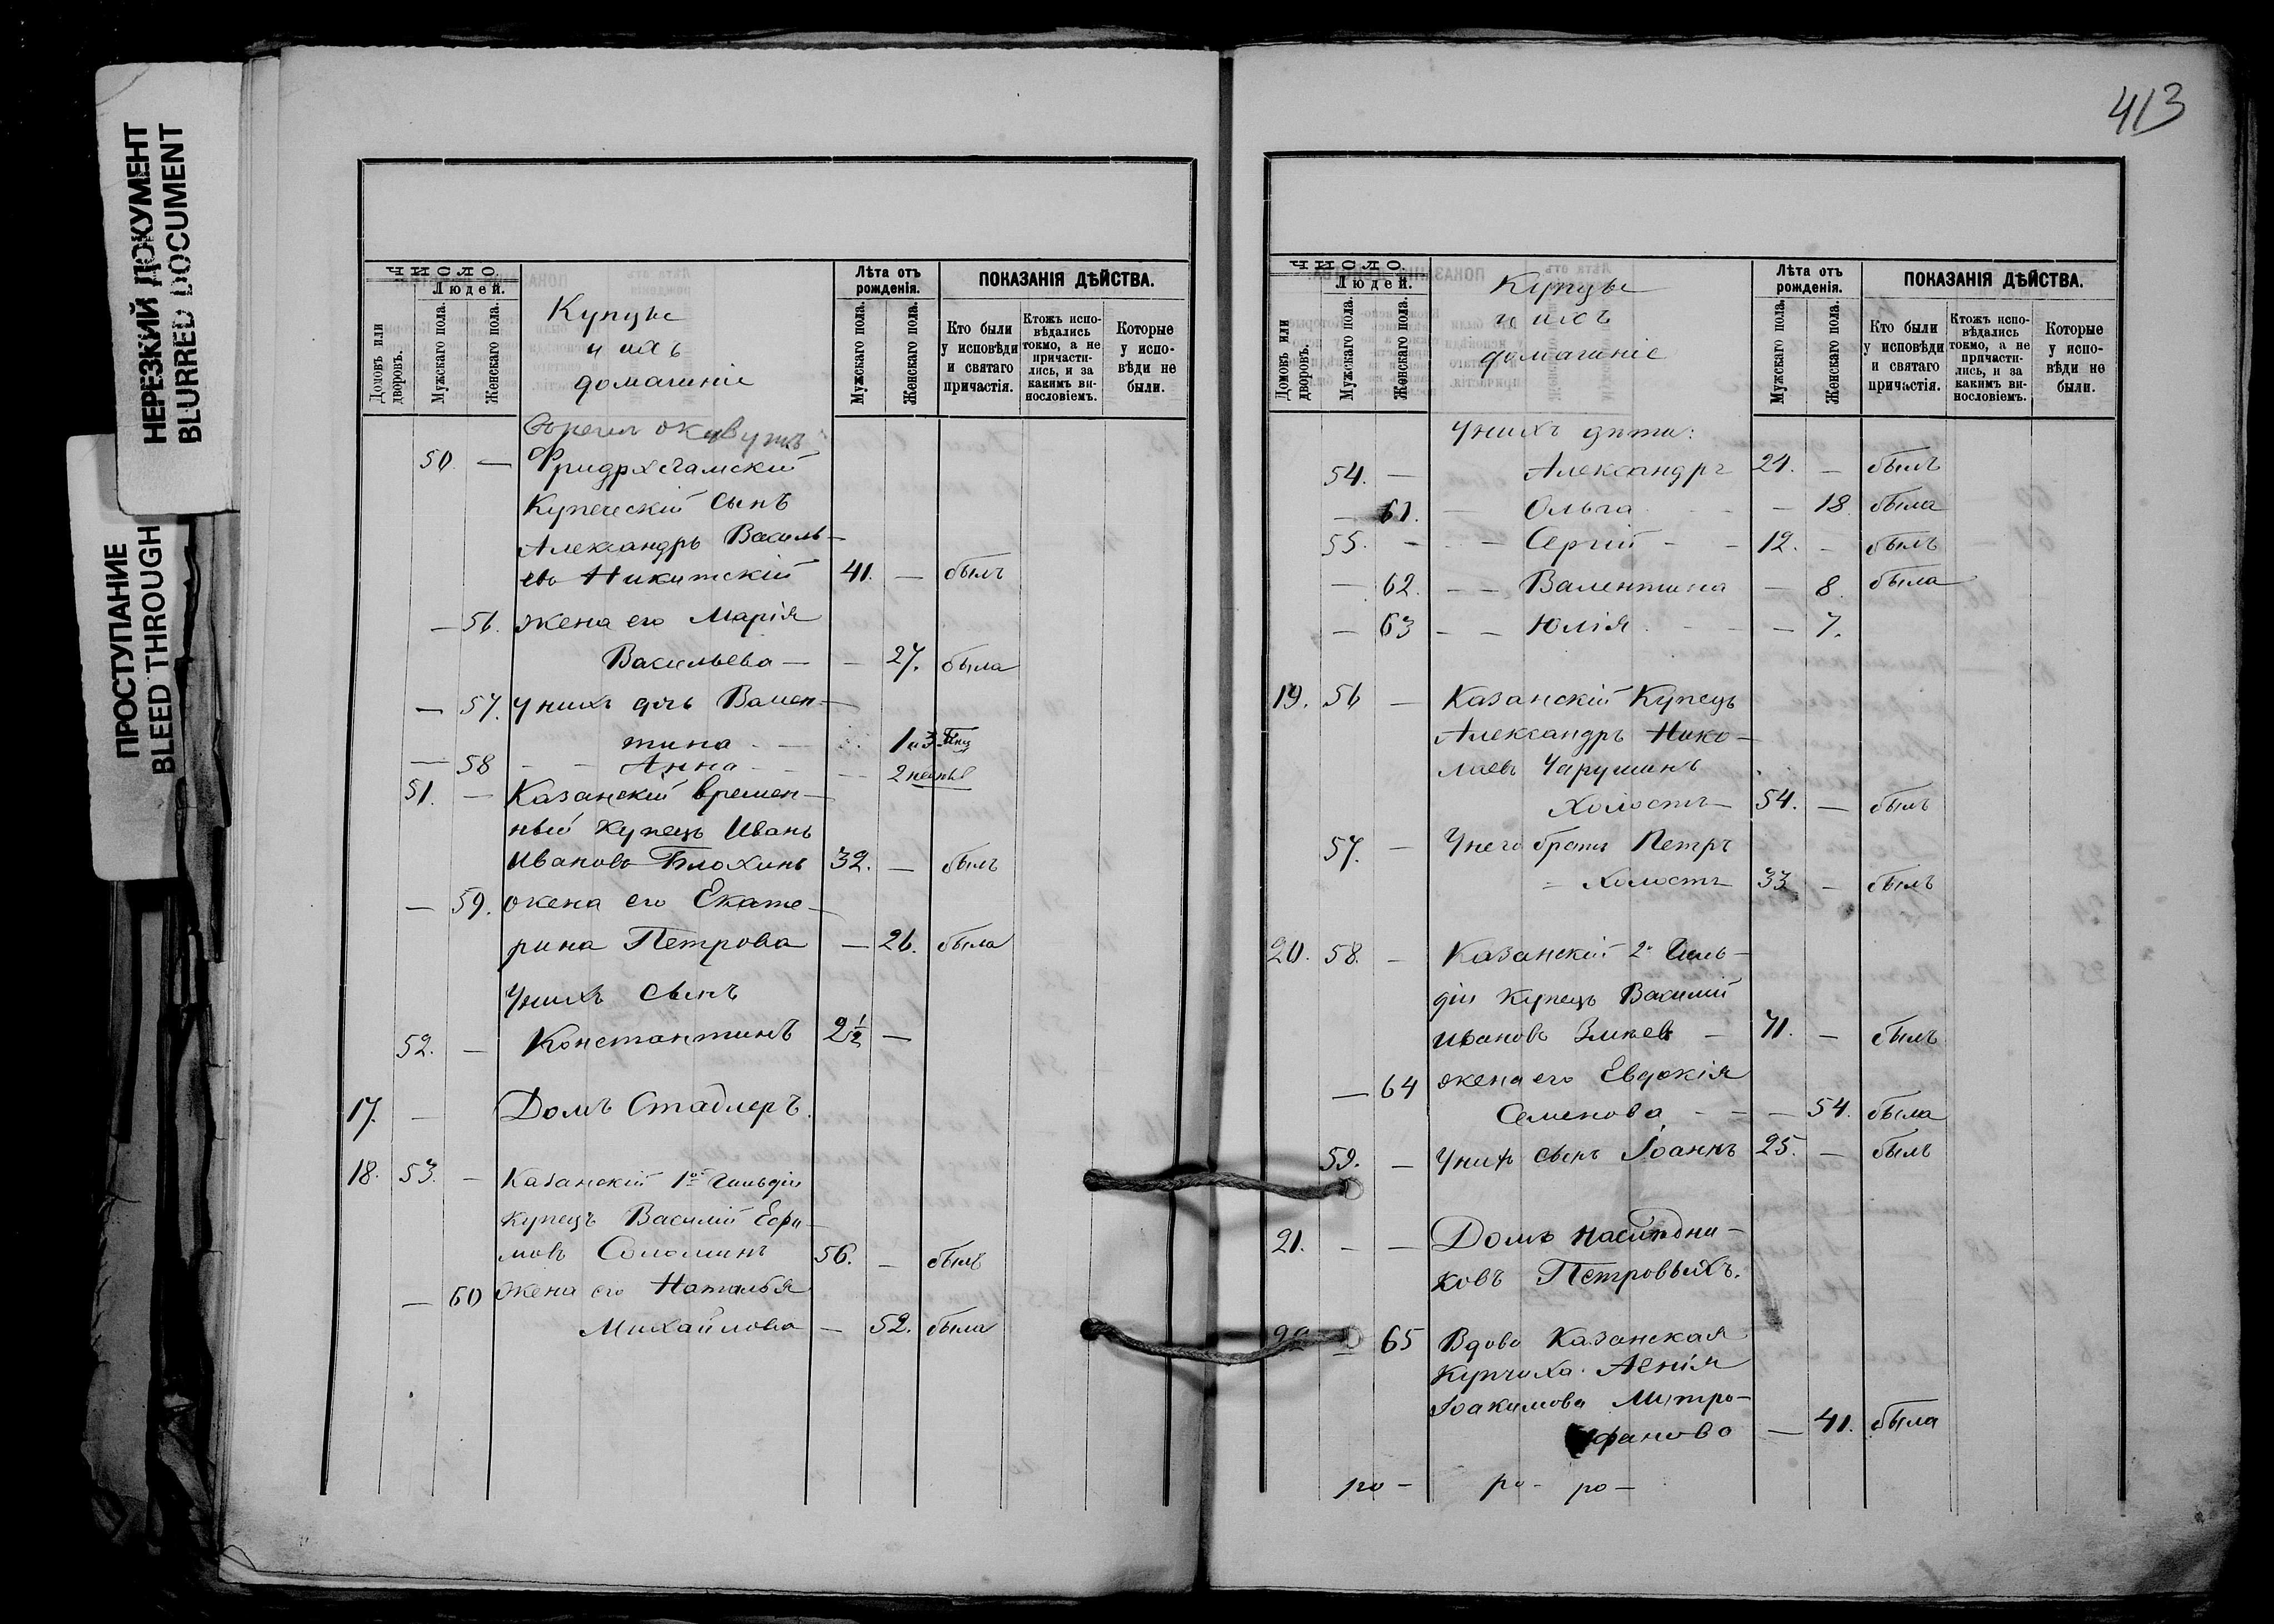 НЕРЕЗКИЙ ДОКУМЕНТ
BLURRED DOCUMENT
ПРОСТУПАНИЕ
BLEED THROUGH
ЧИСЛО.
Людей.
Домовъ или дворовъ.
Мужскаго пола.
Женскаго пола.
Купцы
и ихъ
домашніе
Лѣта отъ рожденія.
Мужскаго пола.
Женскаго пола.
ПОКАЗАНІЯ ДѢЙСТВА.
Кто были у исповѣди и святаго причастія.
Ктожъ исповѣдались токмо, а не причастились, и за какимъ винословіемъ.
Которые у исповѣди не были.
живутъ
50. — Фридрхсгамскій
Купеческій сынъ
Александръ Василь-
евъ Никитскій 41. — былъ
— 56. жена его Марія
Васильева — — 27. была
— 57. У нихъ дочь Вален-
тина
— 58 — — Анна — —
51. — Казанскій времен-
ный Купецъ Иванъ
Ивановъ Блохинъ 32. — былъ
— 59. жена его Екате-
рина Петрова — 26. была
У нихъ сынъ
52. — Константинъ 2½ —
17. — Домъ Стадлеръ.
18. 53. — Казанскій 1й гильдіи
Купецъ Василій Ефи-
мовъ Соломинъ 56. — былъ
— 60 жена его Наталья
Михайлова — 52. была
413
ЧИСЛО.
Людей.
Домовъ или дворовъ.
Мужскаго пола.
Женскаго пола.
Купцы
и ихъ
домашніе
Лѣта отъ рожденія.
Мужскаго пола.
Женскаго пола.
ПОКАЗАНІЯ ДѢЙСТВА.
Кто были у исповѣди и святаго причастія.
Ктожъ исповѣдались токмо, а не причастились, и за какимъ винословіемъ.
Которые у исповѣди не были.
У нихъ дѣти:
54. — Александръ 21. — былъ
— 61. — Ольга — — 18. была
55. — — — Сергій — — 12. — былъ
— 62. — — Валентина — 8. была
— 63 — — Юлія — — — 7.
19. 56 — Казанскій Купецъ
Александръ Нико-
лаевъ Чарушинъ
Холостъ 54. — былъ
57. — У него братъ Петръ
= Холостъ 33 — былъ
20. 58. — Казанскій 2й Гиль-
діи Купецъ Василій
Ивановъ Змѣевъ — 71. — былъ
— 64 жена его Евдокія
Семенова — — — 54. была
59. — У нихъ сынъ Іоаннъ 25. — былъ
21. — — Домъ Наслѣдни-
ковъ Петровыхъ.
65 Вдова Казанская
Купчиха Агнія
Іоакимова Митро-
фанова — 41. была
ро — ро — ро —